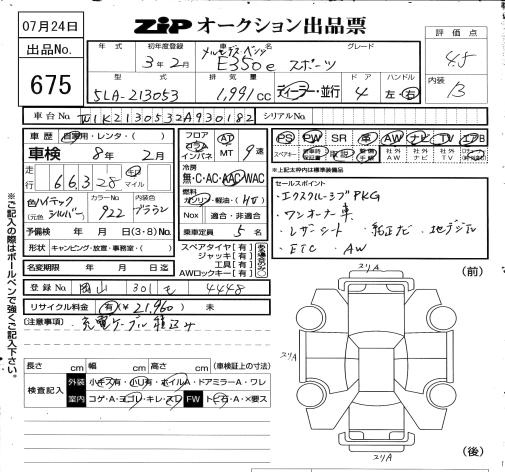 07月24日
ZIP オークション出品票
評価点
4.5
内装
B
出品No.
675
年式
初年度登録
3年2月
車名
メルセデス・ベンツ
E350e スポーツ
グレード
型式
5LA-213053
排気量
1,991cc
ディーラー・並行
ドア
4
ハンドル
左・右
車台No.
W1K2130532A930182
シリアルNo.
車歴
自家用・レンタ・( )
車検
8年2月
走行
66,328
km
マイル
色No.
(元色 シルバー)
カラーNo.
922
内装色
ブラウン
予備検
年 月 日(3・8)No.
形状
キャンピング・放置・事務室・( )
名変期限
年 月 日迄
登録No.
岡山 301 も 4448
リサイクル料金
有(¥21,960) 未
フロア
コラム
インパネ
AT
MT
9速
冷房
無・C・AC・AAC・WAC
燃料
ガソリン・軽油・(HV)
Nox
適合・非適合
乗車定員
5名
スペアタイヤ[有]
ジャッキ[有]
工具[有]
AWロックキー[有]
PS
PW
SR
革
AW
ナビ
TV
エアB
スペアキー
取説
社外AW
社外ナビ
社外TV
※上記太枠内は標準装備品です。
セールスポイント
・エクスクルーシブPKG
・ワンオーナー車
・レザーシート ・純正ナビ ・地デジTV
・ETC ・AW
[注意事項]
・充電ケーブル積込み
長さ cm
幅 cm
高さ cm
(車検証上の寸法)
検査記入
外装
小キズ有・小凹有・ホイルA・ドアミラーA・ワレ
室内
コゲ・A・ヨゴレ・キレ・スレ
FW
トビ石・A・×要ス
※ご記入の際はボールペンで強くご記入下さい。
(前)
スリA
スリA
スリA
(後)